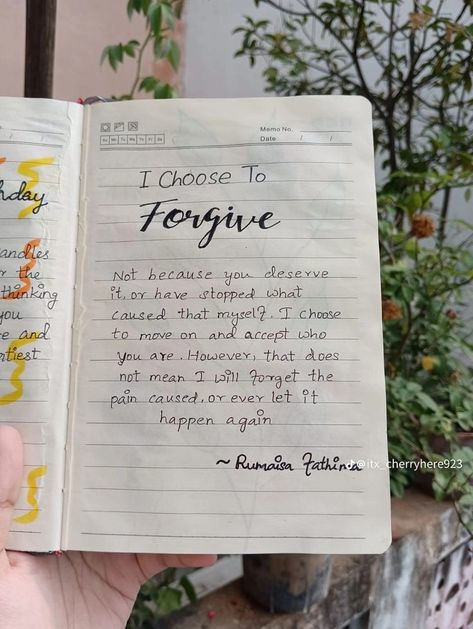 hday
andles
r the
thinking
you
e and
rtiest
Memo No.
Date / /
Su Mo Tu We Th Fr Sa
I Choose To
Forgive
Not because you deserve
it, or have stopped what
caused that myself. I choose
to move on and accept who
you are. However, that does
not mean I will forget the
pain caused, or ever let it
happen again
~ Rumaisa Fathima
@itx_cherryhere923